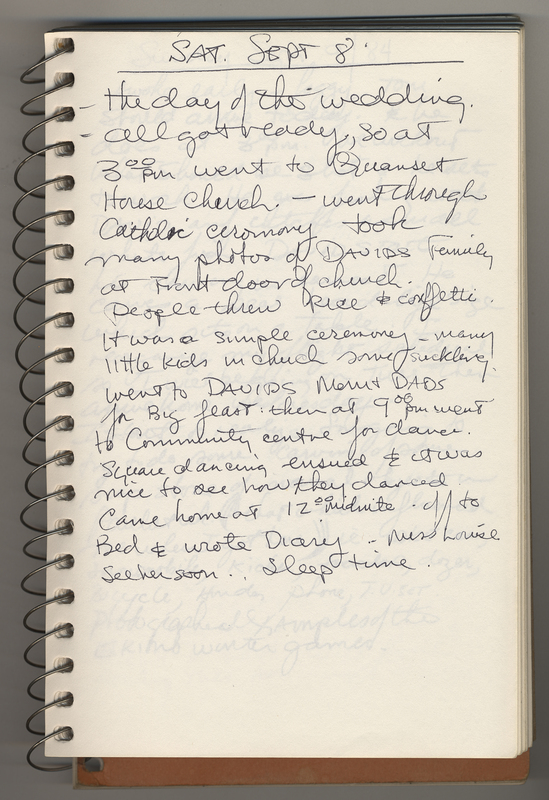 SAT. SEPT 8.
- the day of the wedding.
- all got ready, so at
3:00 pm went to Quanset
Horese Church. - went through
Catholic ceremony took
many photos of DAVIDS Family
at Front door of church.
People threw Rice & confetti.
It was a simple ceremony - many
little kids in chuch some suckling.
went to DAVIDS Mom & DADS
for Big feast. then at 9:00 pm went
to Community centre for dance.
Square dancing ensued & it was
nice to see how they danced
Came home at 12:00 midnite. off to
Bed & wrote Diary - miss Louise
See her soon.. Sleep time.
Photographed samples of the
ESKIMO winter games.